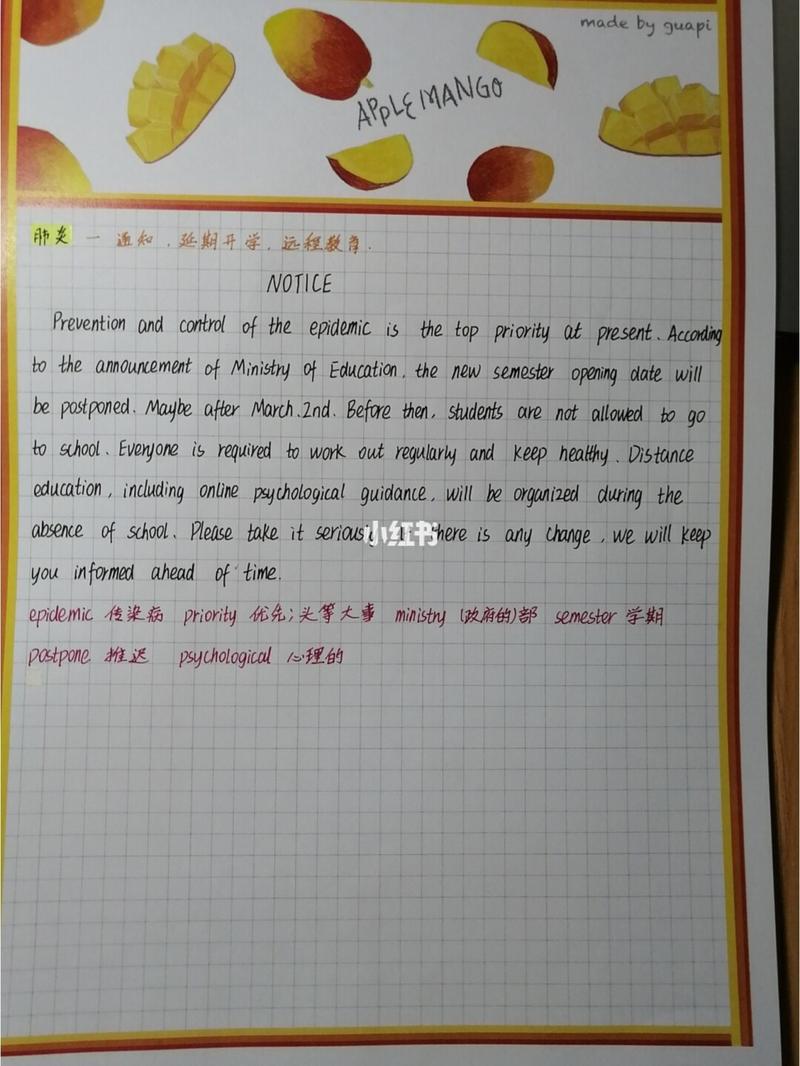 made by guapi
APPLE MANGO
肺炎 — 通知，延期开学，远程教育.
NOTICE
Prevention and control of the epidemic is the top priority at present. According
to the announcement of Ministry of Education, the new semester opening date will
be postponed. Maybe after March.2nd. Before then, students are not allowed to go
to school. Everyone is required to work out regularly and keep healthy. Distance
education, including online psychological guidance, will be organized during the
absence of school. Please take it 小红书 there is any change, we will keep
you informed ahead of time.
epidemic 传染病 priority 优先；头等大事 ministry (政府的)部 semester 学期
postpone 推迟 psychological 心理的